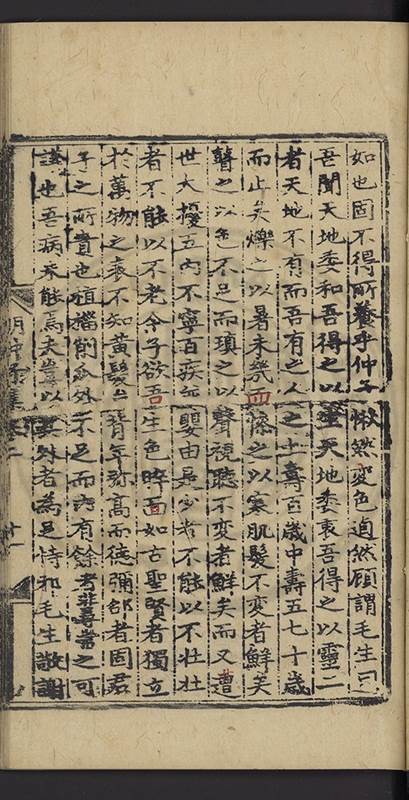 如也固不得所養乎仲子愀然变色逌然顧謂毛生曰
吾聞天地委和吾得之以靈天地委衷吾得之以靈二
者天地不有而吾有之人之上壽百歲中壽五七十歲
而止矣爍之以暑未幾而慘之以寒肌髮不变者鮮矣
聲之以色不足而瑱之以聲視聽不变者鮮矣而又遭
世大擾五内不寧百疾嬰由是少者不能以不壯壯
者不能以不老今子欲吾生色睟吾如古聖賢者獨立
於萬物之表不知黄髮之背年弥高而德彌卲者固君
子之所貴也殖槁削外不足而内有餘者非尋常之可
議也吾病未能焉夫豈以其外者為足恃邪毛生敬謝
卷二
廿一